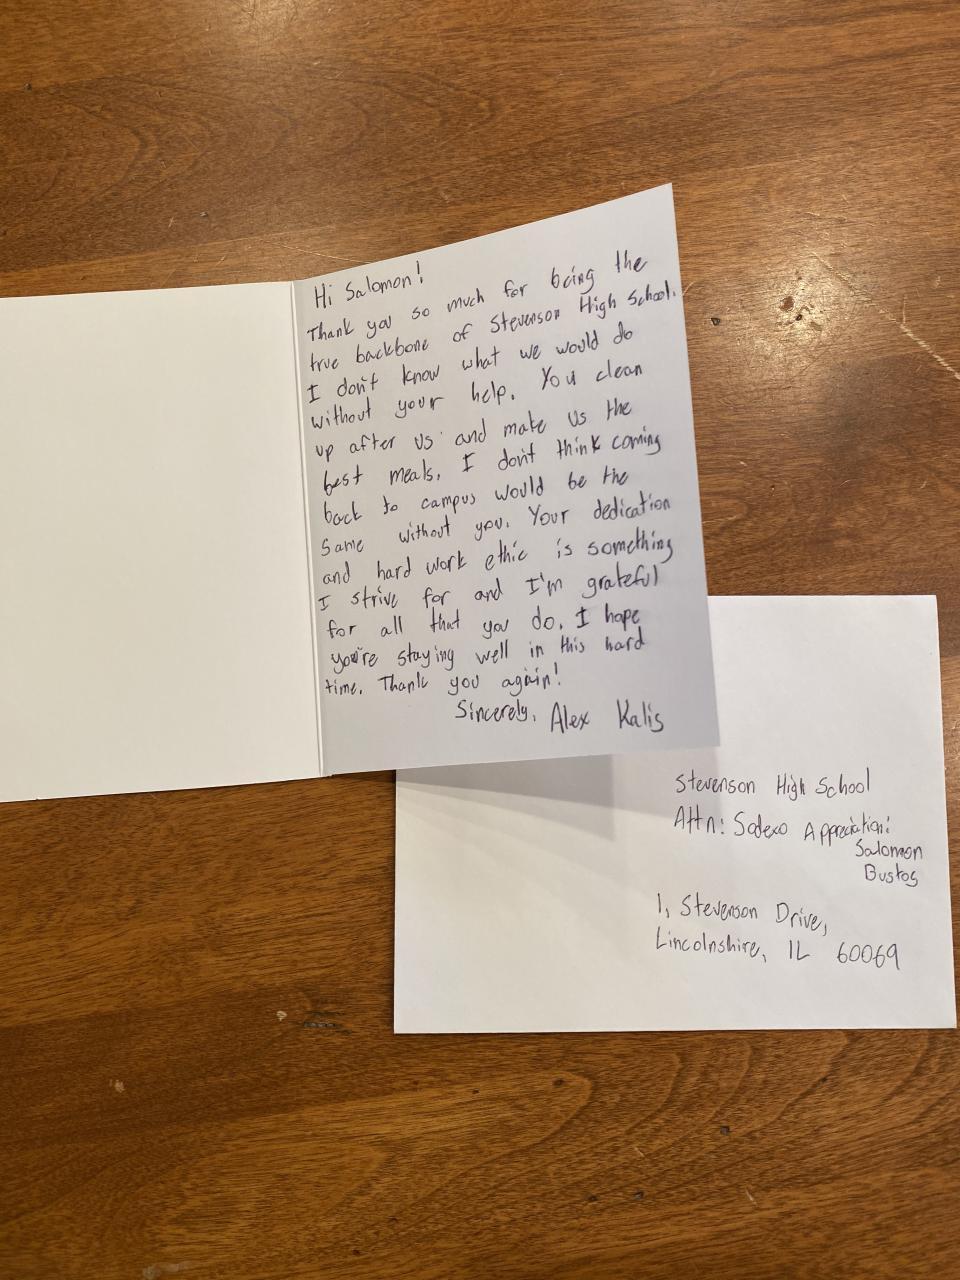 Hi Salomon!
Thank you so much for being the
true backbone of Stevenson High School.
I don't know what we would do
without your help. You clean
up after us and make us the
best meals. I don't think coming
back to campus would be the
same without you. Your dedication
and hard work ethic is something
I strive for and I'm grateful
for all that you do. I hope
you're staying well in this hard
time. Thank you again!
Sincerely, Alex Kalis
Stevenson High School
Attn: Sodexo Appreciation:
Salomon
Bustos
1, Stevenson Drive,
Lincolnshire, IL 60069